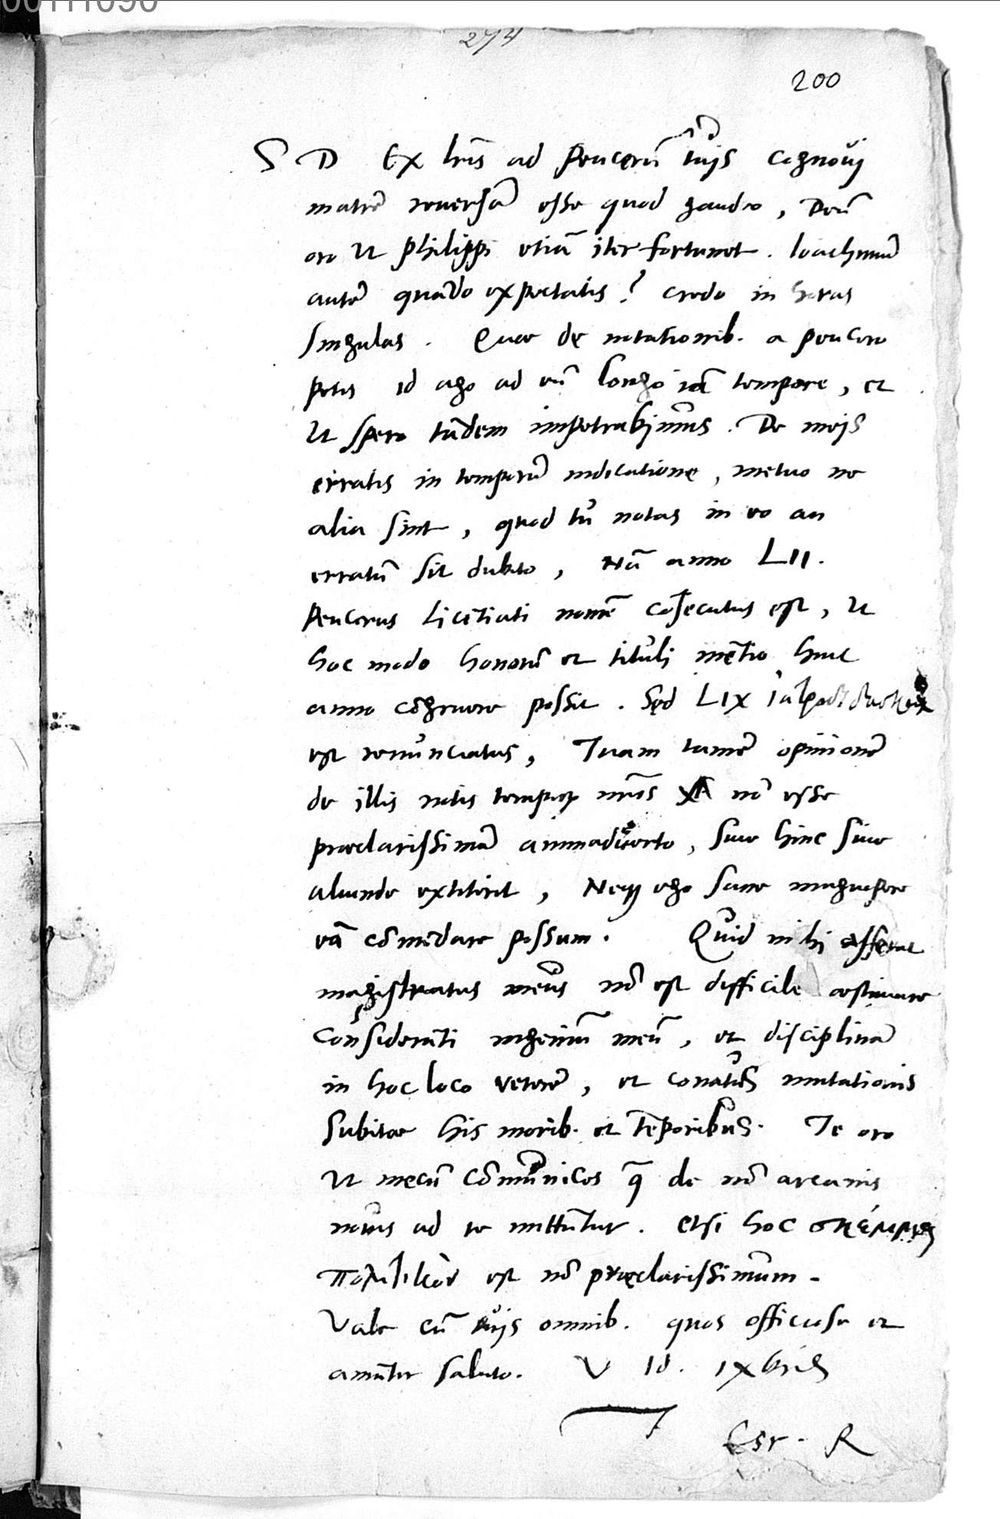 00111090
274
200
S D Ex lris ad Peucerũ tuis cognovi
matrẽ reversã esse quod gaudeo, Deũ
oro ut Philippi etiã iter fortunet. Ioachimũ
autẽ quãdo expectatis? credo in horas
singulas. Quae de notationib. a Peucero
petis id ago ad eũ longo iã tempore, et
ut spero tãdem impetrabimus. De meis
erratis in temporũ indicatione, metuo ne
alia sint, quod tu notas in eo an
erratũ sit dubito, Nã anno LII.
Peucerus licẽtiati nomẽ cõsecutus est, ut
hoc modo honorũ et tituli mẽtio huic
anno cõgruere possit. Sed LIX
est renunciatus, Tuam tamẽ opinionẽ
de illis notis nris nõ esse
praeclarissimã animadverto, sive hinc sive
aliunde extiterit, Neq ego sane magnopere
eã cõmẽdare possum. Quid mihi afferat
magistratus meus nõ est difficile aestimare
cõsiderãti ingeniũ meũ, et disciplinã
in hoc loco veterẽ, et conatus mutationis
subitae his morib. et tẽporibus. Te oro
ut mecũ cõmunices q̃ de nõ arcanis
novis ad te mittũtur. Etsi hoc σκέμμα
πολιτικὸν est nõ praeclarissimum.
Vale cũ tuis omnib. quos officiose et
amãter saluto. V Id. IXbris
Esr. R